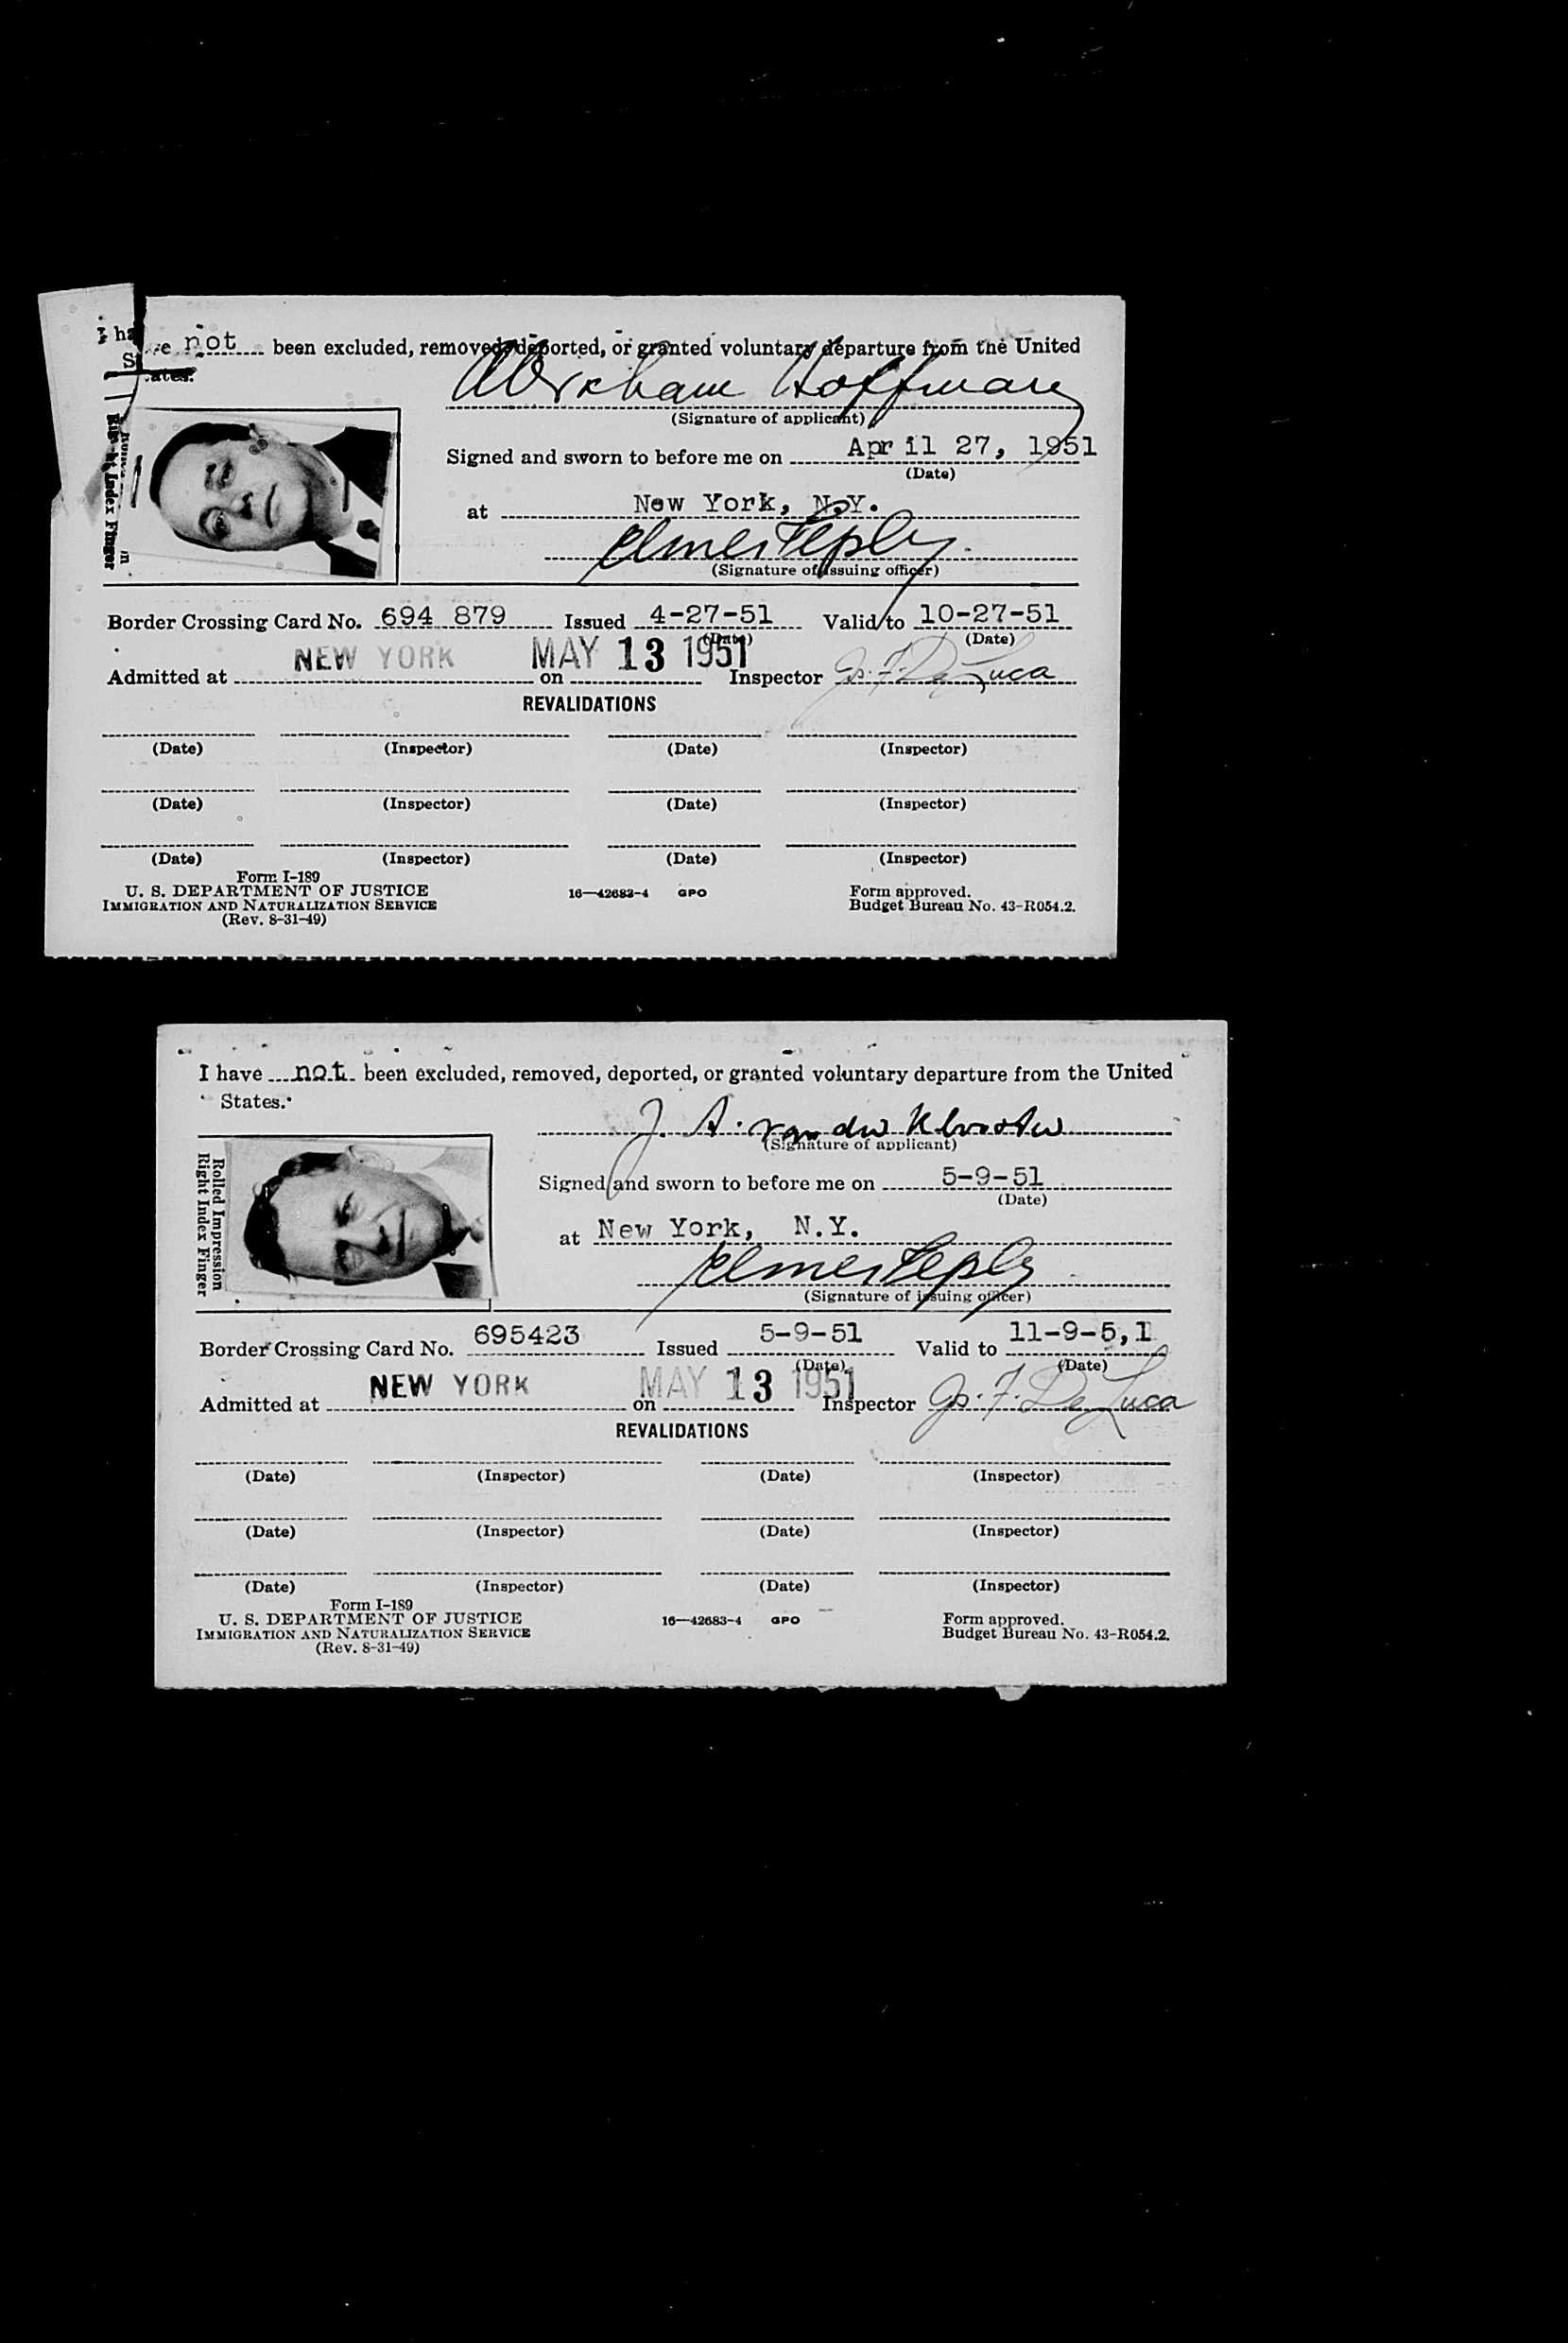 I have not been excluded, removed, deported, or granted voluntary departure from the United
States.
Abraham Hoffman
(Signature of applicant)
Signed and sworn to before me on April 27, 1951
(Date)
at New York, N.Y.
(Signature of issuing officer)
Right Index Finger
Border Crossing Card No. 694 879 Issued 4-27-51 Valid to 10-27-51
(Date) (Date)
Admitted at NEW YORK on MAY 13 1951 Inspector Js. F. De Luca
REVALIDATIONS
(Date) (Inspector) (Date) (Inspector)
(Date) (Inspector) (Date) (Inspector)
(Date) (Inspector) (Date) (Inspector)
Form I-189
U. S. DEPARTMENT OF JUSTICE 16—42683-4 GPO Form approved.
IMMIGRATION AND NATURALIZATION SERVICE Budget Bureau No. 43-R054.2.
(Rev. 8-31-49)
I have not been excluded, removed, deported, or granted voluntary departure from the United
States.
J. A. van der
(Signature of applicant)
Rolled Impression
Right Index Finger
Signed and sworn to before me on 5-9-51
(Date)
at New York, N.Y.
(Signature of issuing officer)
Border Crossing Card No. 695423 Issued 5-9-51 Valid to 11-9-5,1
(Date) (Date)
Admitted at NEW YORK on MAY 13 1951 Inspector Js. F. De Luca
REVALIDATIONS
(Date) (Inspector) (Date) (Inspector)
(Date) (Inspector) (Date) (Inspector)
(Date) (Inspector) (Date) (Inspector)
Form I-189
U. S. DEPARTMENT OF JUSTICE 16—42683-4 GPO Form approved.
IMMIGRATION AND NATURALIZATION SERVICE Budget Bureau No. 43-R054.2.
(Rev. 8-31-49)